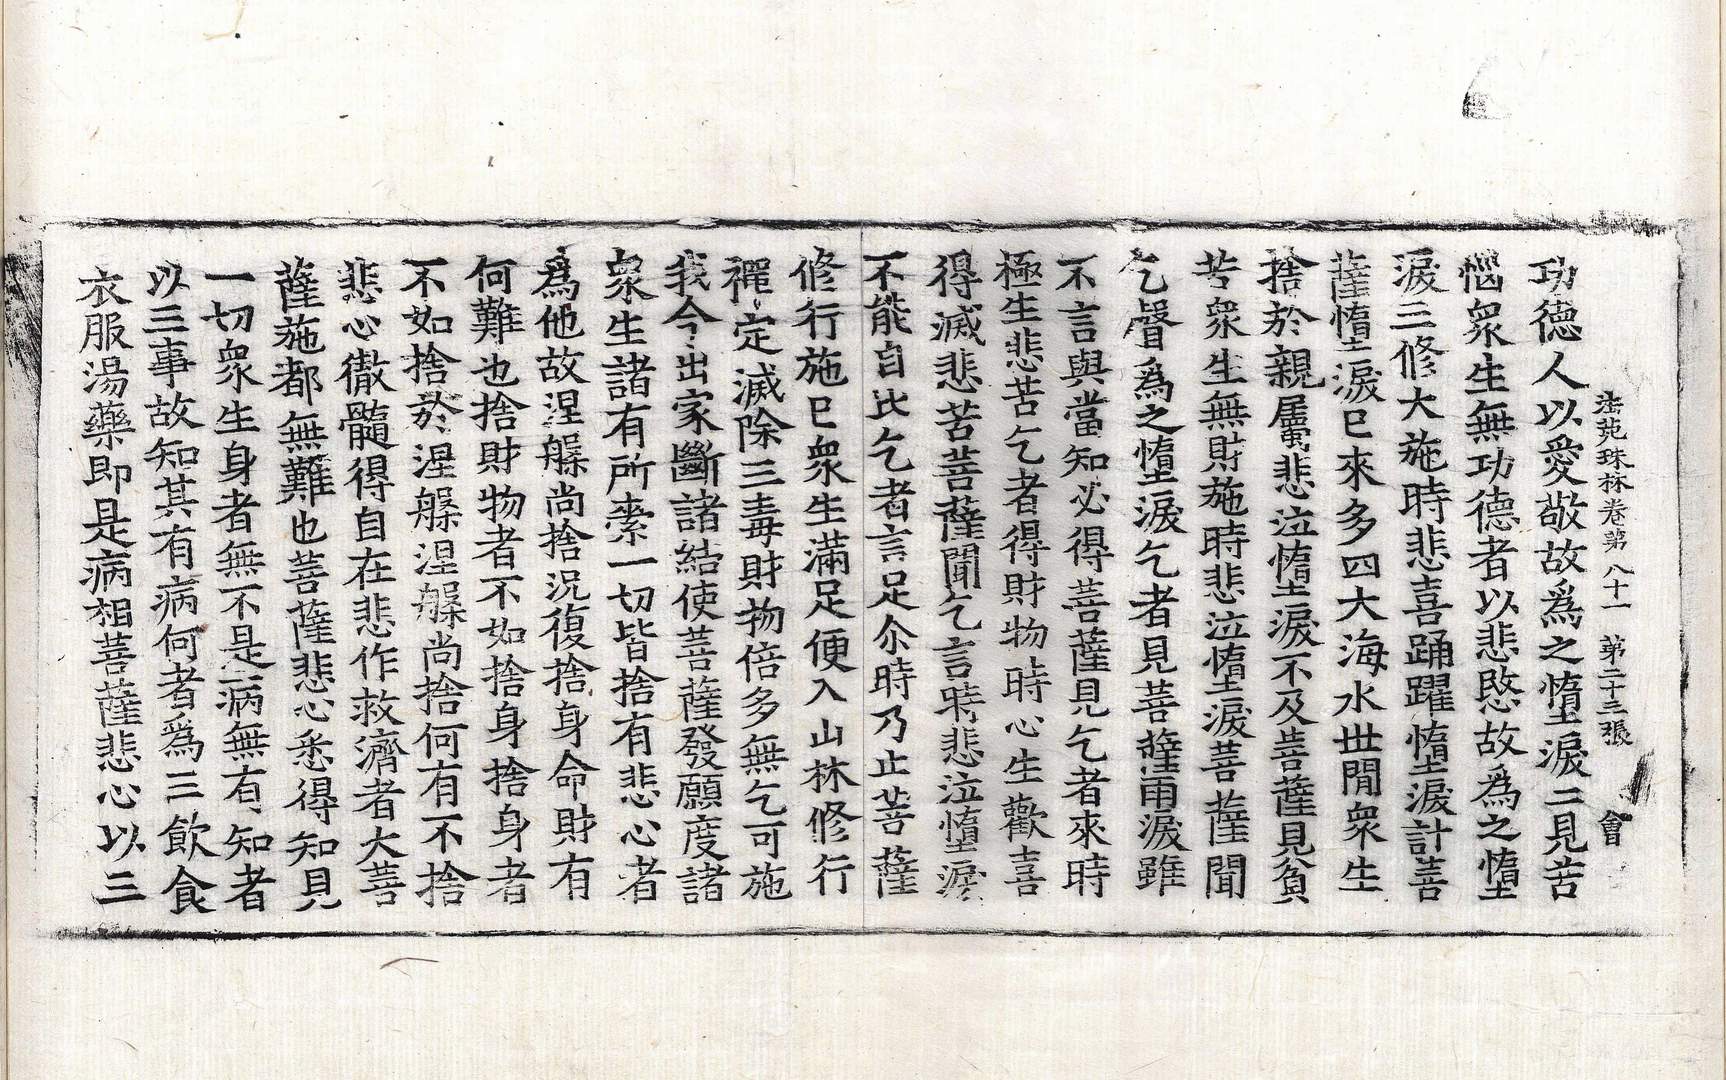 法苑珠林卷第八十一 第二十三張 會
功德人以愛敬故爲之墮淚二見苦
惱衆生無功德者以悲愍故爲之墮
淚三修大施時悲喜踊躍墮淚計菩
薩墮淚已來多四大海水世閒衆生
捨於親屬悲泣墮淚不及菩薩見貧
苦衆生無財施時悲泣墮淚菩薩聞
乞聲爲之墮淚乞者見菩薩雨淚雖
不言與當知必得菩薩見乞者來時
極生悲苦乞者得財物時心生歡喜
得滅悲苦菩薩聞乞言時悲泣墮淚
不能自止乞者言足尒時乃止菩薩
修行施已衆生滿足便入山林修行
禪定滅除三毒財物倍多無乞可施
我今出家斷諸結使菩薩發願度諸
衆生諸有所索一切皆捨有悲心者
爲他故涅槃尚捨況復捨身命財有
何難也捨財物者不如捨身捨身者
不如捨於涅槃涅槃尚捨何有不捨
悲心徹髓得自在悲作救濟者大菩
薩施都無難也菩薩悲心悉得知見
一切衆生身者無不是病無有知者
以三事故知其有病何者爲三飮食
衣服湯藥即是病相菩薩悲心以三